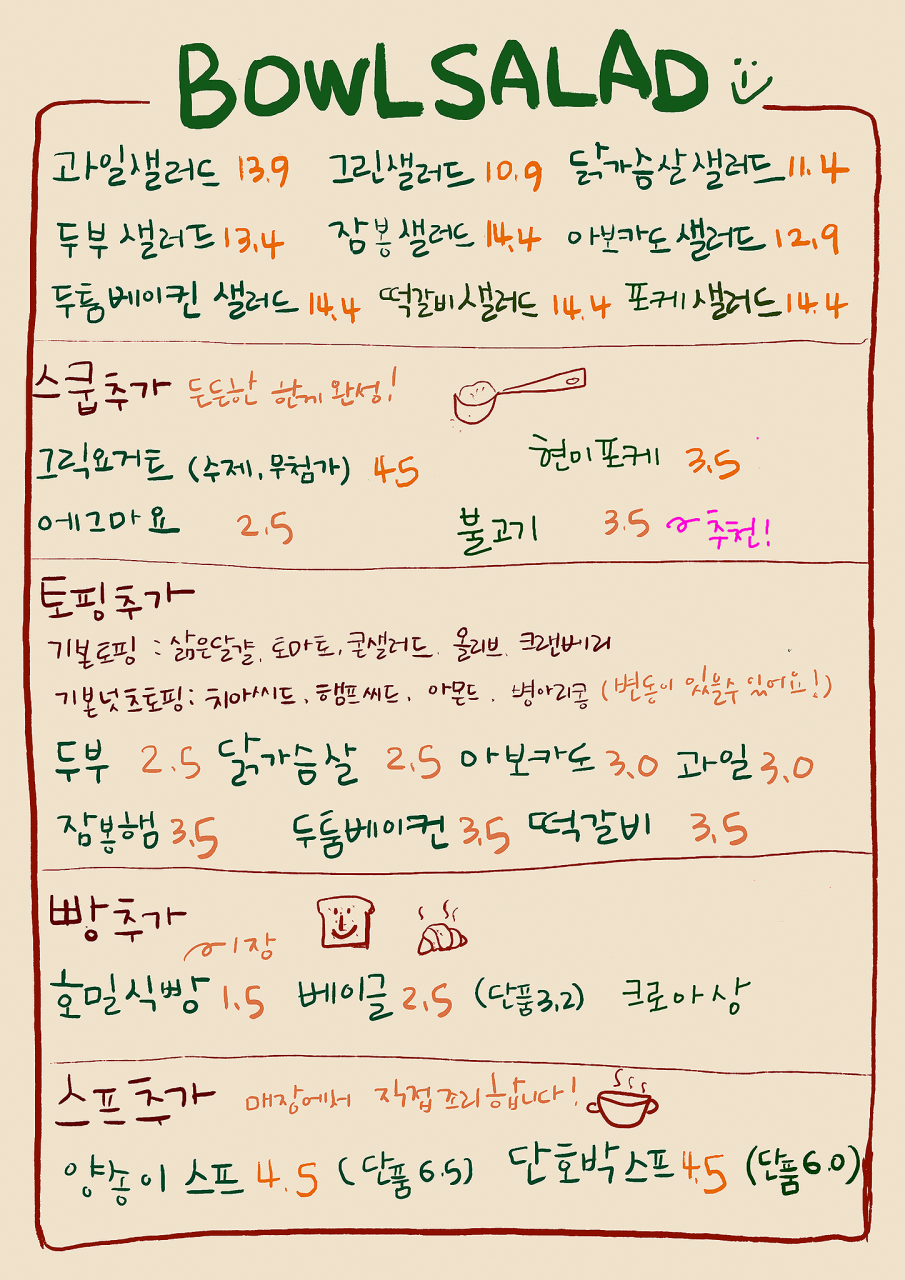 BOWL SALAD
과일샐러드 13.9 그린샐러드 10.9 닭가슴살샐러드 11.4
두부 샐러드 13.4 잠봉샐러드 14.4 아보카도샐러드 12.9
두툼베이컨 샐러드 14.4 떡갈비샐러드 14.4 포케샐러드 14.4
스쿱추가 든든한 한끼 완성!
그릭요거트 (수제, 무첨가) 4.5 현미포케 3.5
에그마요 2.5 불고기 3.5 추천!
토핑추가
기본토핑 : 삶은달걀, 토마토, 콘샐러드, 올리브, 크랜베리
기본넛츠토핑 : 치아씨드, 햄프씨드, 아몬드, 병아리콩 (변동이 있을수 있어요!)
두부 2.5 닭가슴살 2.5 아보카도 3.0 과일 3.0
잠봉햄 3.5 두툼베이컨 3.5 떡갈비 3.5
빵추가
1장
호밀식빵 1.5 베이글 2.5 (단품3.2) 크로아상
스프추가 매장에서 직접조리합니다!
양송이 스프 4.5 (단품6.5) 단호박스프 4.5 (단품6.0)